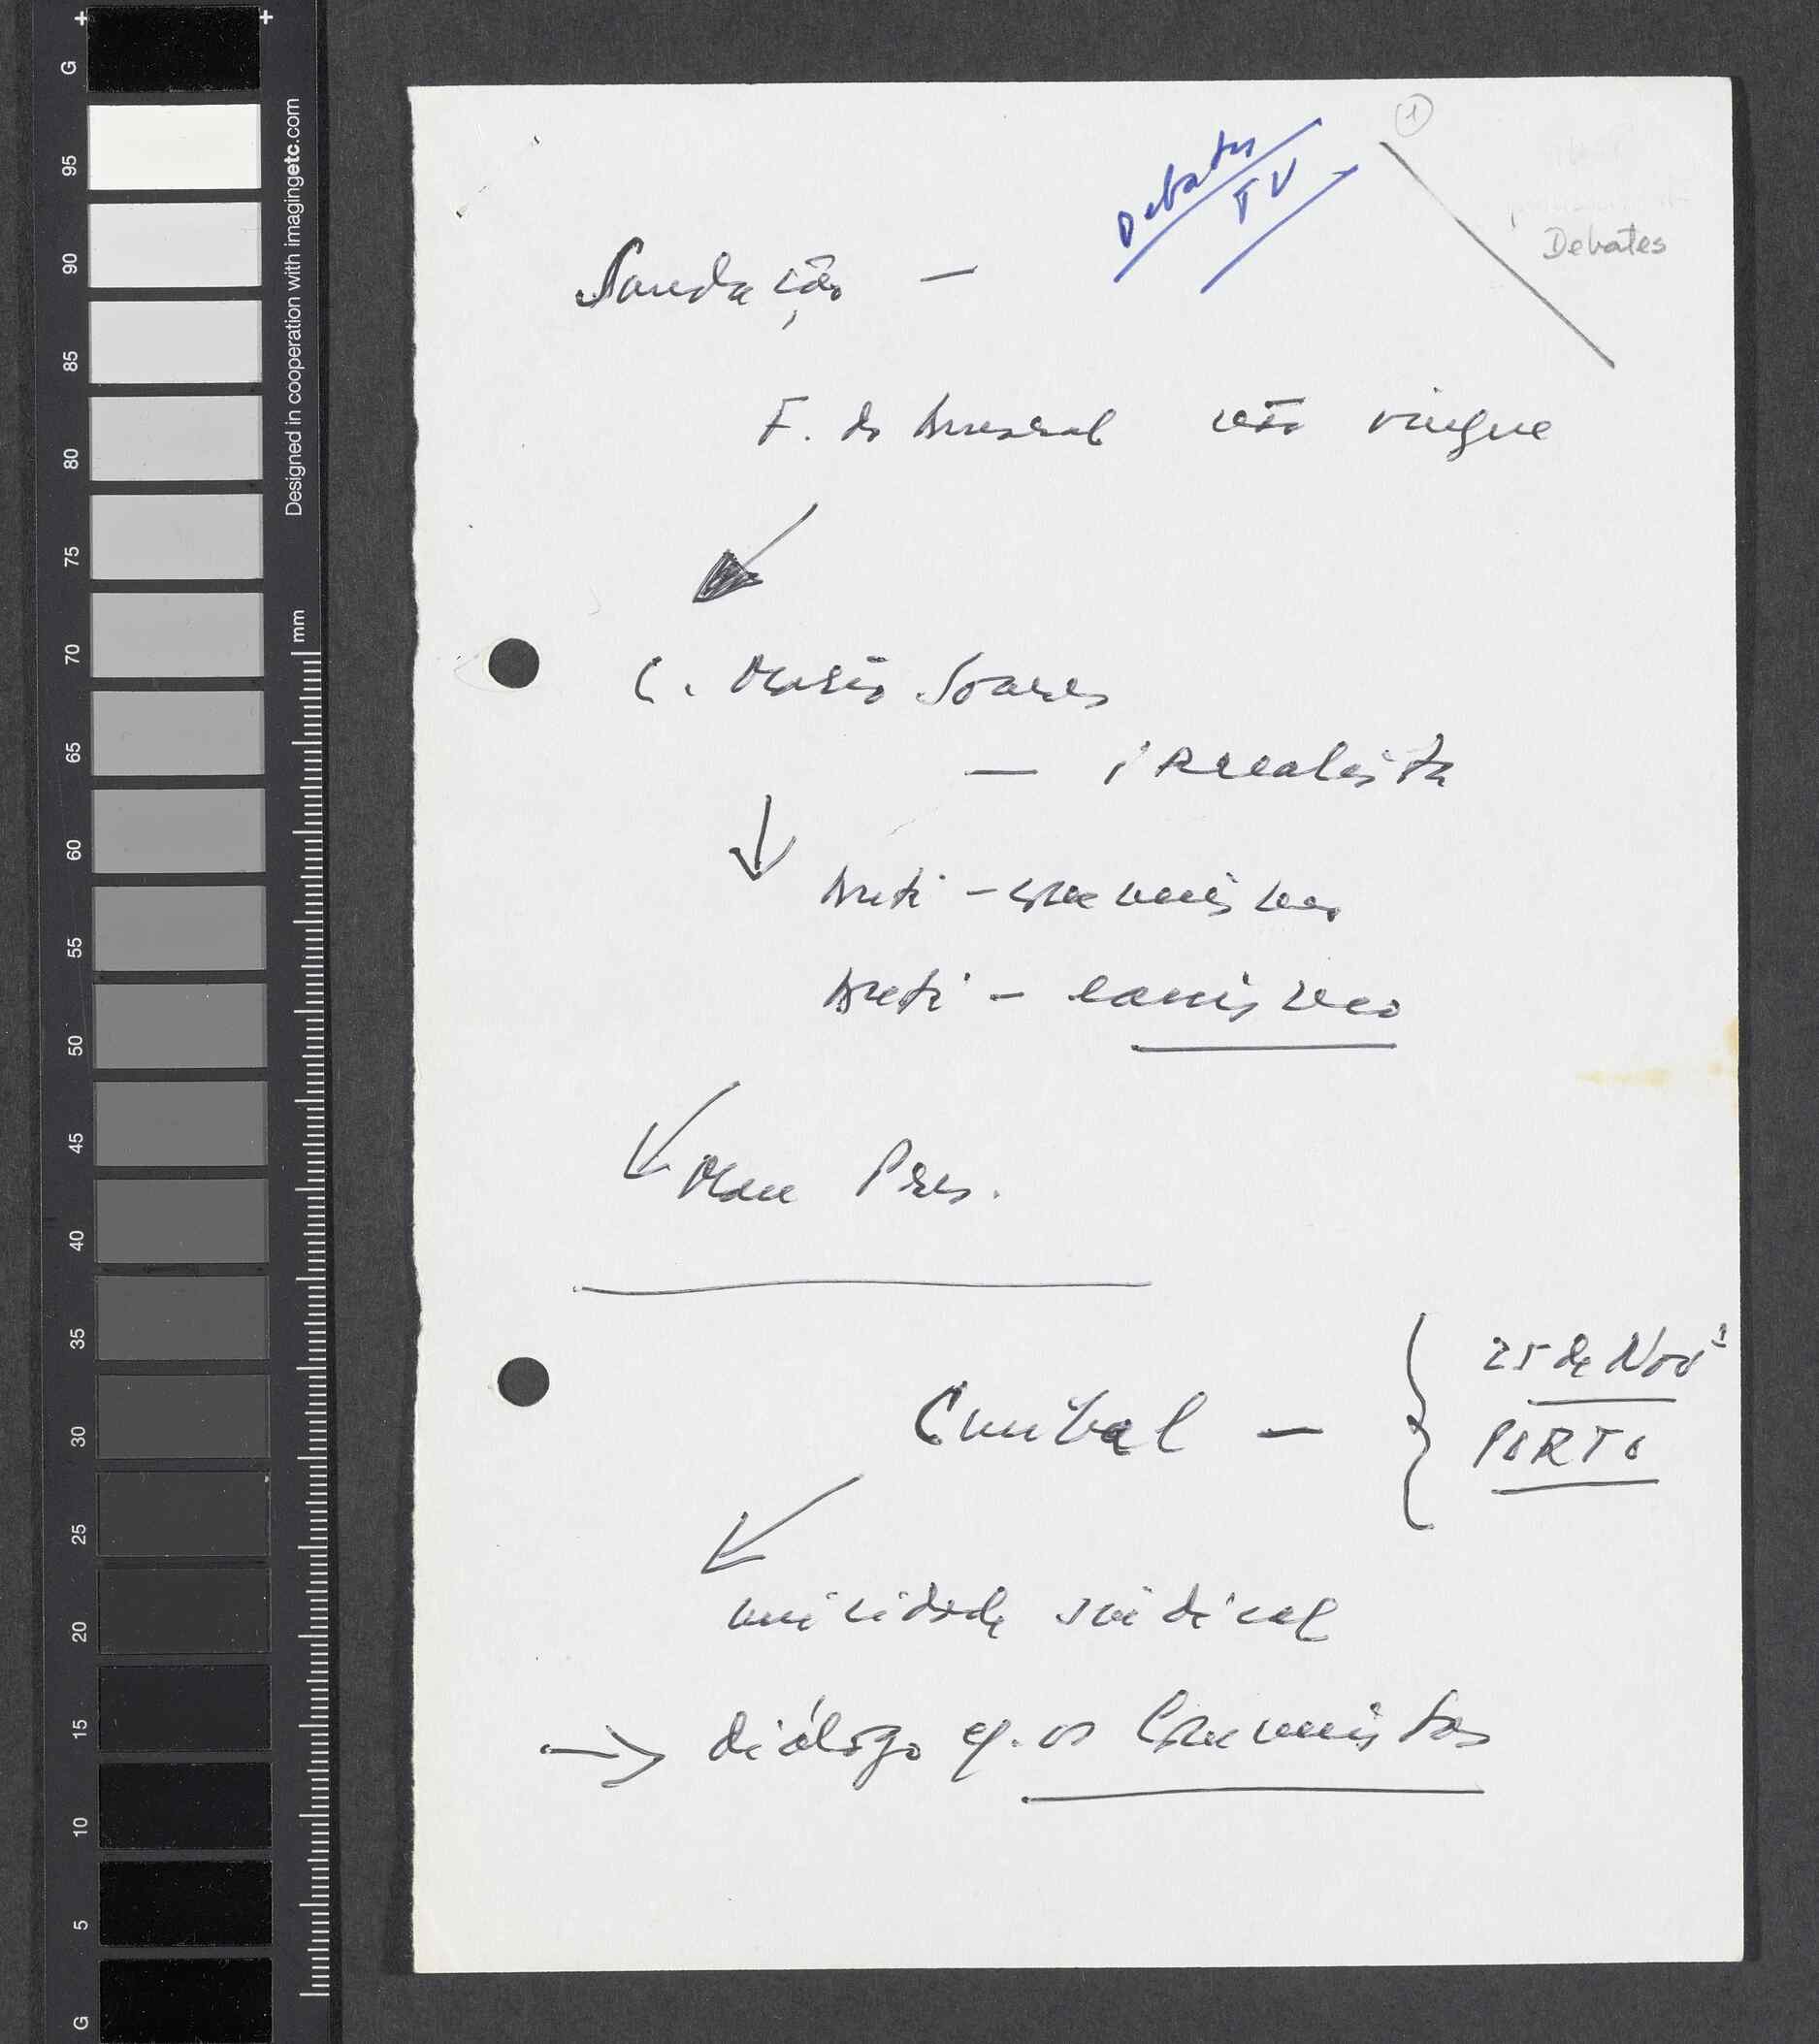 G
95
90
85
80
75
70
65
60
55
50
45
40
35
30
25
20
15
10
5
G
Designed in cooperation with imagingetc.com
mm
1
Debates
TV
Debates
Saudação —
F. do Amaral não vingue
C. Mário Soares
— iRRealista
Anti-comunismo
Anti-eanismo
Mau Pres.
Cunhal —
25 de Novº
PORTO
unicidade sindical
→ diálogo c/. os Comunistas